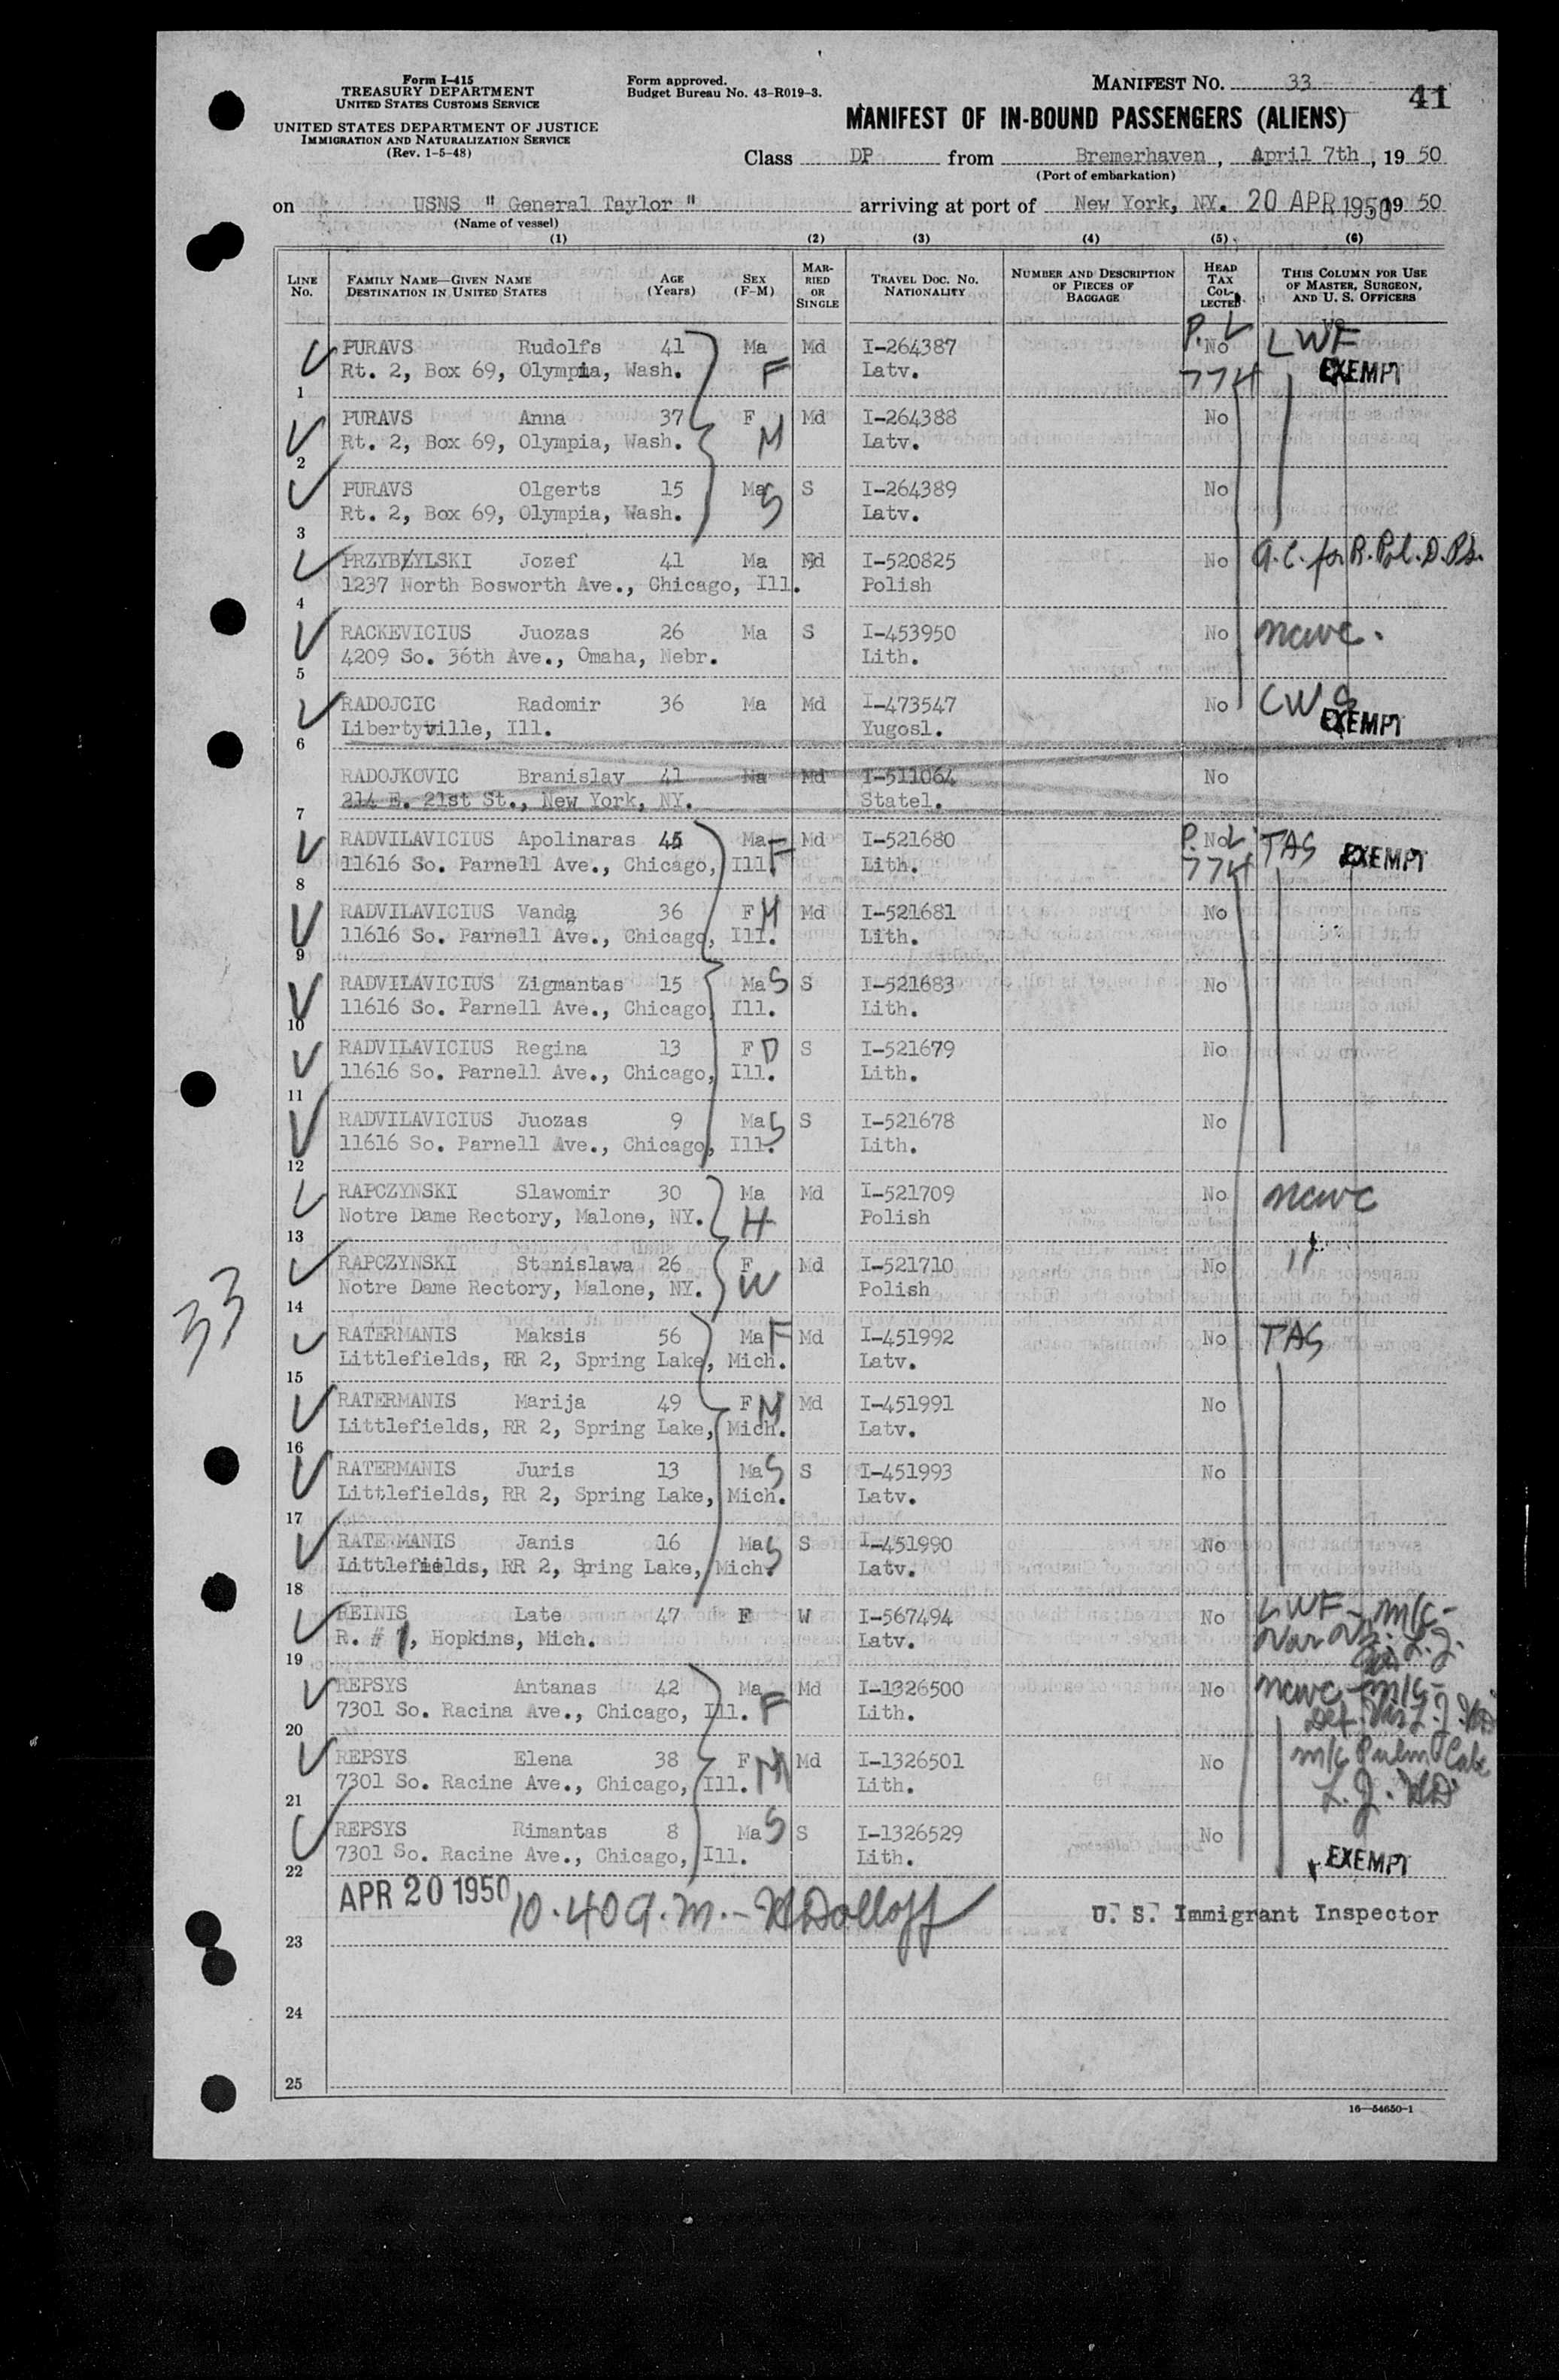 Form I-415
TREASURY DEPARTMENT
UNITED STATES CUSTOMS SERVICE
UNITED STATES DEPARTMENT OF JUSTICE
IMMIGRATION AND NATURALIZATION SERVICE
(Rev. 1-5-48)
Form approved.
Budget Bureau No. 43-R019-3.
MANIFEST NO. 33
41
MANIFEST OF IN-BOUND PASSENGERS (ALIENS)
Class DP from Bremerhaven, April 7th, 19 50
(Port of embarkation)
on USNS " General Taylor " arriving at port of New York, NY. 20 APR 1950, 19 50
(Name of vessel)
(1) (2) (3) (4) (5) (6)
LINE No. FAMILY NAME—GIVEN NAME DESTINATION IN UNITED STATES AGE (Years) SEX (F-M) MARRIED OR SINGLE TRAVEL DOC. NO. NATIONALITY NUMBER AND DESCRIPTION OF PIECES OF BAGGAGE HEAD TAX COLLECTED THIS COLUMN FOR USE OF MASTER, SURGEON, AND U. S. OFFICERS
PURAVS Rudolfs 41 Ma Md I-264387 P. L No LWF
1 Rt. 2, Box 69, Olympia, Wash. F Latv. 774 EXEMPT
PURAVS Anna 37 F Md I-264388 No
2 Rt. 2, Box 69, Olympia, Wash. M Latv.
PURAVS Olgerts 15 Ma S S I-264389 No
3 Rt. 2, Box 69, Olympia, Wash. Latv.
PRZYBZYLSKI Jozef 41 Ma Md I-520825 No A.C. for R. Pol. D.Ps.
4 1237 North Bosworth Ave., Chicago, Ill. Polish
RACKEVICIUS Juozas 26 Ma S I-453950 No NCWC.
5 4209 So. 36th Ave., Omaha, Nebr. Lith.
RADOJCIC Radomir 36 Ma Md I-473547 No CWS
6 Libertyville, Ill. Yugosl. EXEMPT
RADOJKOVIC Branislav 41 Ma Md I-511064 No
7 214 E. 21st St., New York, NY. Statel.
RADVILAVICIUS Apolinaras 45 Ma F Md I-521680 P. No L TAS EXEMPT
8 11616 So. Parnell Ave., Chicago, Ill. Lith. 774
RADVILAVICIUS Vanda 36 F M Md I-521681 No
9 11616 So. Parnell Ave., Chicago, Ill. Lith.
RADVILAVICIUS Zigmantas 15 Ma S S I-521683 No
10 11616 So. Parnell Ave., Chicago, Ill. Lith.
RADVILAVICIUS Regina 13 F D S I-521679 No
11 11616 So. Parnell Ave., Chicago, Ill. Lith.
RADVILAVICIUS Juozas 9 Ma S S I-521678 No
12 11616 So. Parnell Ave., Chicago, Ill. Lith.
RAPCZYNSKI Slawomir 30 Ma Md I-521709 No NCWC
13 Notre Dame Rectory, Malone, NY. H Polish
RAPCZYNSKI Stanislawa 26 F Md I-521710 No "
14 Notre Dame Rectory, Malone, NY. W Polish
RATERMANIS Maksis 56 Ma F Md I-451992 No TAS
15 Littlefields, RR 2, Spring Lake, Mich. Latv.
RATERMANIS Marija 49 F M Md I-451991 No
16 Littlefields, RR 2, Spring Lake, Mich. Latv.
RATERMANIS Juris 13 Ma S S I-451993 No
17 Littlefields, RR 2, Spring Lake, Mich. Latv.
RATE MANIS Janis 16 Ma S S I-451990 No
18 Littlefields, RR 2, Spring Lake, Mich. Latv.
REINIS Late 47 F W I-567494 No LWF - m/c -
19 R. # 1, Hopkins, Mich. Latv. L.J.
REPSYS Antanas 42 Ma Md I-1326500 No NCWC - m/c -
20 7301 So. Racina Ave., Chicago, Ill. F Lith. Def. Vis L.J.
REPSYS Elena 38 F M Md I-1326501 No m/c Pulm Calc
21 7301 So. Racine Ave., Chicago, Ill. Lith. L.J. MD
REPSYS Rimantas 8 Ma S S I-1326529 No
22 7301 So. Racine Ave., Chicago, Ill. Lith. EXEMPT
APR 20 1950 10.40 a.m. - Dolloff U. S. Immigrant Inspector
23
24
25
33
16—54650-1